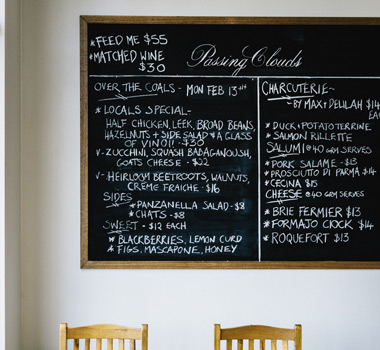 *FEED ME $55
*MATCHED WINE
$30
Passing Clouds
OVER THE COALS - MON FEB 13TH
* LOCALS SPECIAL-
HALF CHICKEN, LEEK, BROAD BEANS,
HAZELNUTS + SIDE SALAD & A GLASS
OF VINO!! - $30
V- ZUCCHINI, SQUASH BABAGANOUSH,
GOATS CHEESE - $22
V- HEIRLOOM BEETROOTS, WALNUTS,
CRÈME FRAICHE - $16
SIDES
* PANZANELLA SALAD - $8
* CHATS - $8
SWEET - $12 EACH
* BLACKBERRIES, LEMON CURD
* FIGS, MASCAPONE, HONEY
CHARCUTERIE~
~BY MAX + DELILAH $14
EA
* DUCK + POTATO TERRINE
* SALMON RILLETTE
SALUMI @ 40 GRM SERVES
* PORK SALAME - $13
* PROSCIUTTO DI PARMA $14
* CECINA $15
CHEESE @ 40 GRM SERVES
* BRIE FERMIER $13
* FORMAJO CIOCK $14
* ROQUEFORT $13